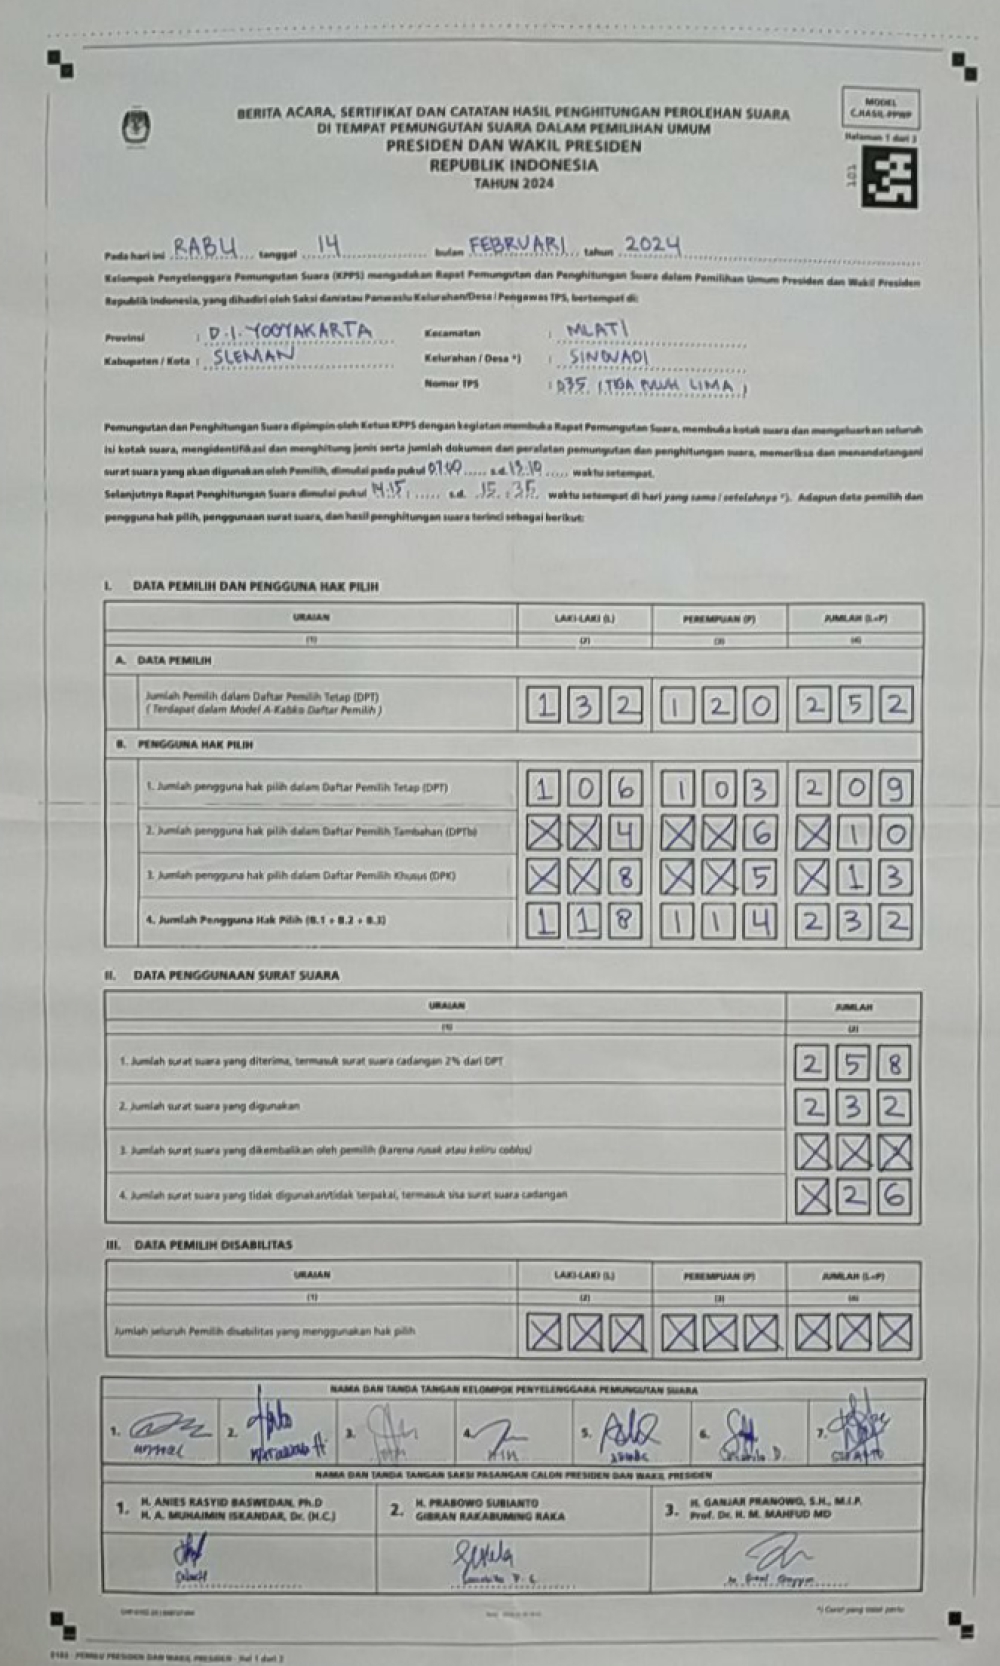 BERITA ACARA, SERTIFIKAT DAN CATATAN HASIL PENGHITUNGAN PEROLEHAN SUARA
DI TEMPAT PEMUNGUTAN SUARA DALAM PEMILIHAN UMUM
PRESIDEN DAN WAKIL PRESIDEN
REPUBLIK INDONESIA
TAHUN 2024
MODEL
C.HASIL-PPWP
Halaman 1 dari 3
101
Pada hari ini RABU tanggal 14 bulan FEBRUARI tahun 2024
Kelompok Penyelenggara Pemungutan Suara (KPPS) mengadakan Rapat Pemungutan dan Penghitungan Suara dalam Pemilihan Umum Presiden dan Wakil Presiden
Republik Indonesia, yang dihadiri oleh Saksi dan/atau Panwaslu Kelurahan/Desa / Pengawas TPS, bertempat di:
Provinsi : D.I. YOGYAKARTA Kecamatan : MLATI
Kabupaten / Kota : SLEMAN Kelurahan / Desa *) : SINDUADI
Nomor TPS : 035 (TIGA PULUH LIMA)
Pemungutan dan Penghitungan Suara dipimpin oleh Ketua KPPS dengan kegiatan membuka Rapat Pemungutan Suara, membuka kotak suara dan mengeluarkan seluruh
isi kotak suara, mengidentifikasi dan menghitung jenis serta jumlah dokumen dan peralatan pemungutan dan penghitungan suara, memeriksa dan menandatangani
surat suara yang akan digunakan oleh Pemilih, dimulai pada pukul 07.00 s.d. 13.10 waktu setempat.
Selanjutnya Rapat Penghitungan Suara dimulai pukul 14.15 s.d. 15.35 waktu setempat di hari yang sama / setelahnya *). Adapun data pemilih dan
pengguna hak pilih, penggunaan surat suara, dan hasil penghitungan suara terinci sebagai berikut:
I. DATA PEMILIH DAN PENGGUNA HAK PILIH
URAIAN LAKI-LAKI (L) PEREMPUAN (P) JUMLAH (L+P)
(1) (2) (3) (4)
A. DATA PEMILIH
Jumlah Pemilih dalam Daftar Pemilih Tetap (DPT)
(Terdapat dalam Model A-Kabko Daftar Pemilih) 132 120 252
B. PENGGUNA HAK PILIH
1. Jumlah pengguna hak pilih dalam Daftar Pemilih Tetap (DPT) 106 103 209
2. Jumlah pengguna hak pilih dalam Daftar Pemilih Tambahan (DPTb) XX4 XX6 X10
3. Jumlah pengguna hak pilih dalam Daftar Pemilih Khusus (DPK) XX8 XX5 X13
4. Jumlah Pengguna Hak Pilih (B.1 + B.2 + B.3) 118 114 232
II. DATA PENGGUNAAN SURAT SUARA
URAIAN JUMLAH
(1) (2)
1. Jumlah surat suara yang diterima, termasuk surat suara cadangan 2% dari DPT 258
2. Jumlah surat suara yang digunakan 232
3. Jumlah surat suara yang dikembalikan oleh pemilih (karena rusak atau keliru coblos) XXX
4. Jumlah surat suara yang tidak digunakan/tidak terpakai, termasuk sisa surat suara cadangan X26
III. DATA PEMILIH DISABILITAS
URAIAN LAKI-LAKI (L) PEREMPUAN (P) JUMLAH (L+P)
(1) (2) (3) (4)
Jumlah seluruh Pemilih disabilitas yang menggunakan hak pilih XXX XXX XXX
NAMA DAN TANDA TANGAN KELOMPOK PENYELENGGARA PEMUNGUTAN SUARA
1. 2. 3. 4. 5. 6. 7.
NAMA DAN TANDA TANGAN SAKSI PASANGAN CALON PRESIDEN DAN WAKIL PRESIDEN
1. H. ANIES RASYID BASWEDAN, Ph.D
H. A. MUHAIMIN ISKANDAR, Dr. (H.C.)
2. H. PRABOWO SUBIANTO
GIBRAN RAKABUMING RAKA
3. H. GANJAR PRANOWO, S.H., M.I.P.
Prof. Dr. H. M. MAHFUD MD
*) Coret yang tidak perlu
PEMILU PRESIDEN DAN WAKIL PRESIDEN - Hal 1 dari 3